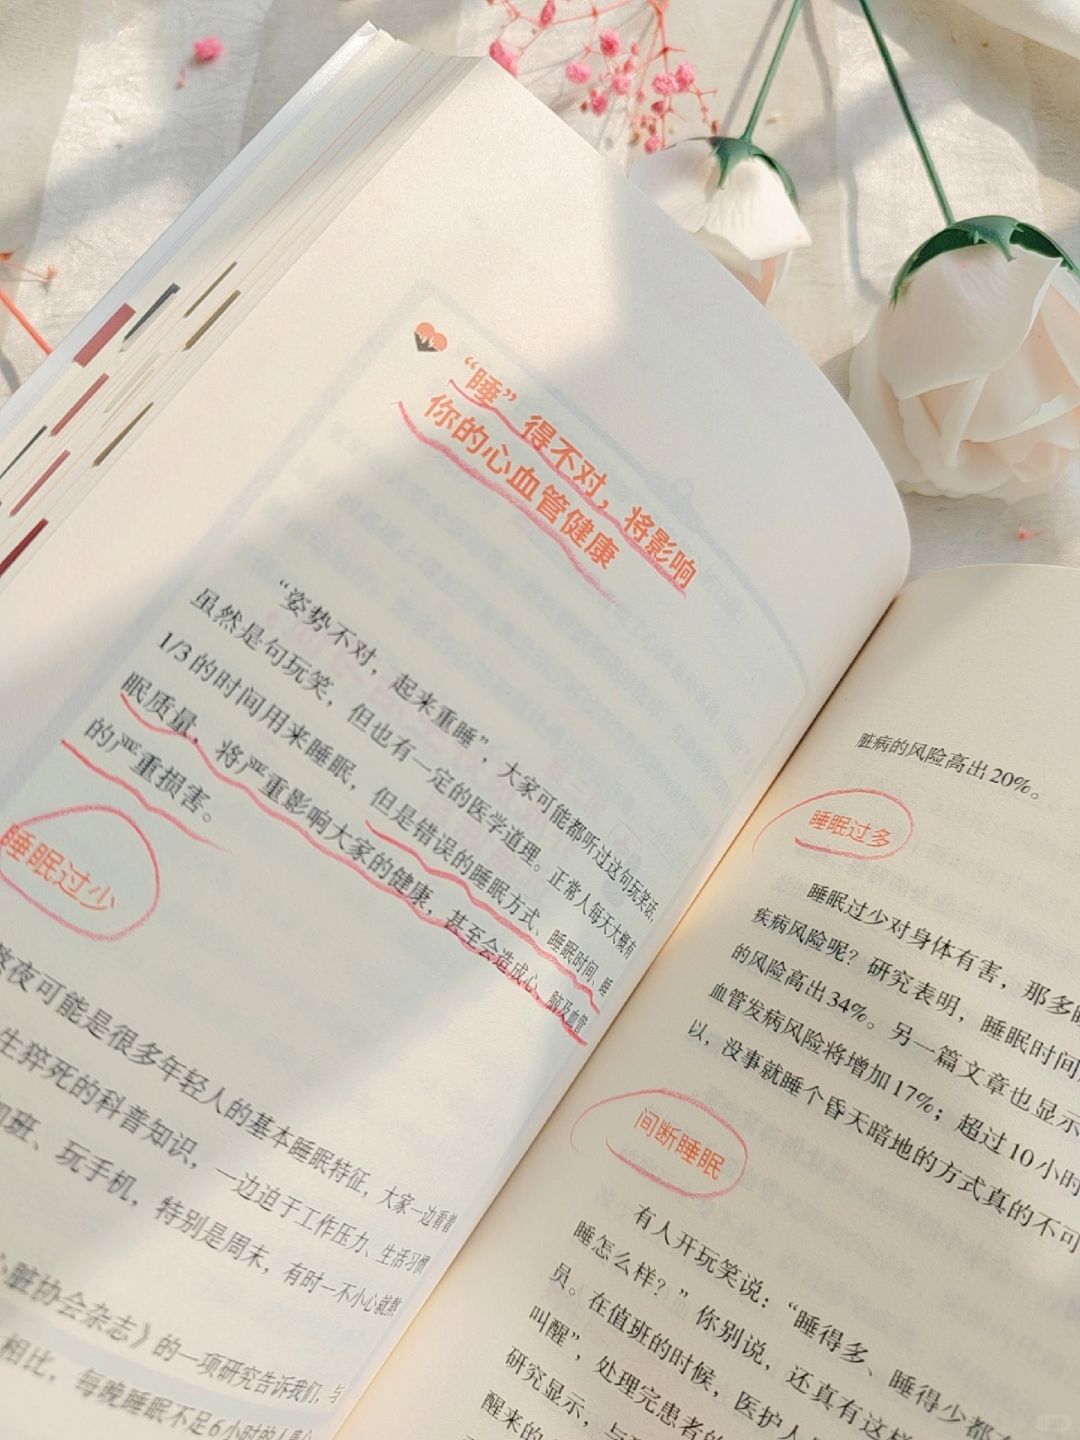 “睡”得不对，将影响
你的心血管健康
“姿势不对，起来重睡”，大家可能都听过这句玩笑话，
虽然是句玩笑，但也有一定的医学道理。正常人每天大概有
1/3的时间用来睡眠，但是错误的睡眠方式、睡眠时间、睡
眠质量，将严重影响大家的健康，甚至会造成心、脑及血管
的严重损害。
睡眠过少
熬夜可能是很多年轻人的基本睡眠特征，大家一边看着
生猝死的科普知识，一边迫于工作压力、生活习惯
加班、玩手机，特别是周末，有时一不小心就熬
脏协会杂志》的一项研究告诉我们，与
相比，每晚睡眠不足6小时的人患心
脏病的风险高出20%。
睡眠过多
睡眠过少对身体有害，那多睡
疾病风险呢？研究表明，睡眠时间
的风险高出34%。另一篇文章也显示
血管发病风险将增加17%；超过10小时
以，没事就睡个昏天暗地的方式真的不可
间断睡眠
有人开玩笑说：“睡得多、睡得少都有
睡怎么样？”你别说，还真有这样
员。在值班的时候，医护人
叫醒”，处理完患者的
研究显示，与
醒来的